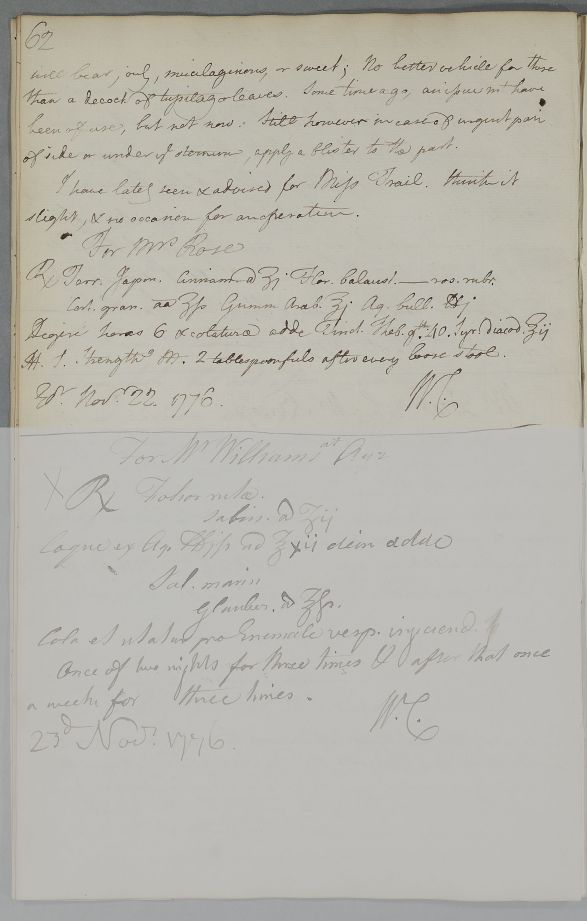 62
will bear, only, mucilaginous, or sweet; No better vehicle for these
than a decoct. of tussilago leaves. Some time ago, an issue mt have
been of use, but not now: Still however in case of urgent pain
of side or under ye sternum, apply a blister to the part.
I have lately seen & advised for Miss Trail. think it
slight, & no occasion for an operation.
For Mrs Rose
℞ Terr. Japon. Cinnam. a ʒj Flor. balaust. — ros. rubr.
Cort. gran. aa ʒss Gumm. Arab. ʒj Aq. bull. ℔j
Digere horas 6 & colaturæ adde Tinct. Theb. gtt. 40. Syr. diacod. ʒij
M. S. Strengthg M. 2 tablespoonfuls after every loose stool.
Edr. Novr. 22. 1776.
W. C.
For Mr Williams at Ayr
X ℞ Folior. rutæ.
sabin. a ʒij
Coque ex Aq. ℔jss ad ℥xii dein adde
Sal. marin
Glauber. a ℥ss.
Cola et utatur pro Enemate vesp. injiciend.
Once of two nights for three times & after that once
a week for three times.
W. C.
23d Novr. 1776.